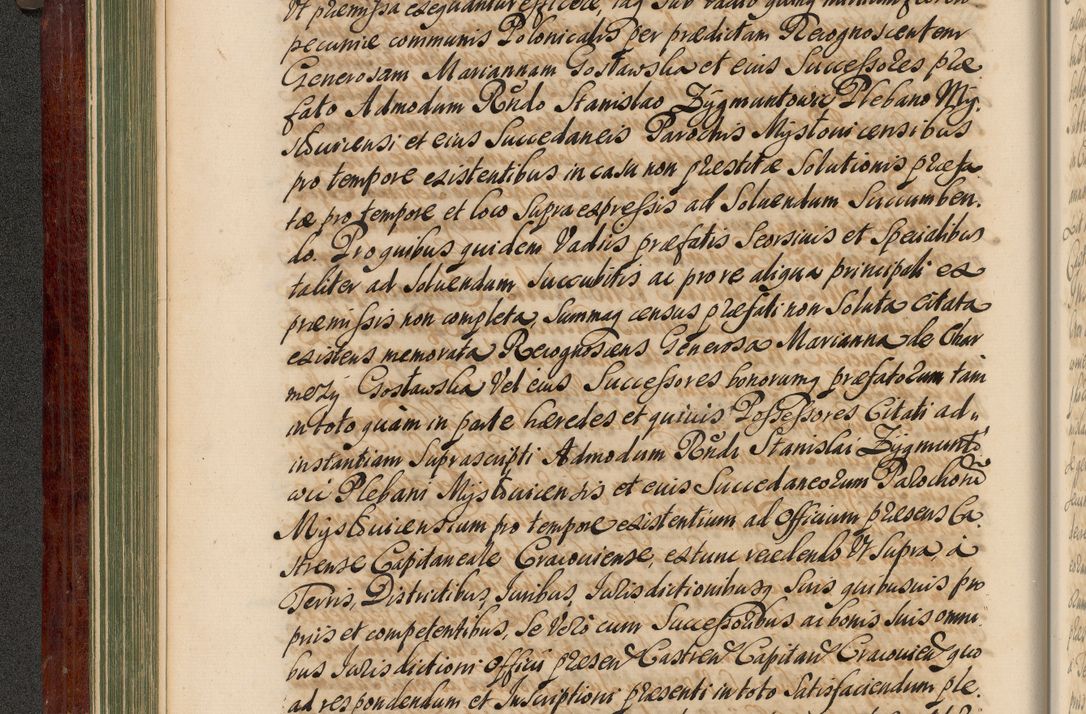 pecuniæ communis Polonicalis per prædictam Recognoscentem
Generosam Mariannam Gosławska et eius Successores præ
fato Admodum Rñdo Stanislao Zÿgmuntowic Plebano Mÿ,
słowicensi et eius Succedaneis Parochis Mÿsłowicensibus
pro tempore existentibus in casu non præstitæ Solutionis præfa
tæ pro tempore et loco Supra expressis ad Solvendum Succumben,
do. Pro quibus quidem Vadiis præfatis Seorsivis et Specialibus
taliter ad Solvendum Succubitis ac pro re aliqua principali ex
præmissis non completa, Summaq census præfati non Soluta Citata
existens memorata Recognoscens Generosa Marianna de Char
mezÿ Gosławska Vel eius Successores bonorumq præfatorum tam
in toto quàm in parte hæredes et quivis Possessores Citati ad,,
instantiam Suprascripti Admodum Rñdi Stanislai Zÿgmunto
wic Plebani Mÿsłowicensis et eius Succedaneorum Parochorũ
Mÿsłowicensium pro tempore existentium ad Officium præsens Ca
strense Capitaneale Cracoviense, extunc recedendo Vt Supra, à
Terris, Districtibus, Juribus Jurisdictionibusq Suis quibusvis pro
priis et competentibus, Se Verò cum Successoribus ac bonis Suis omni
bus Jurisdictioni Officii præsen Castren Capitan Cracovien quo
ad respondendum et Inscriptioni præsenti in toto Satisfaciendum ple,